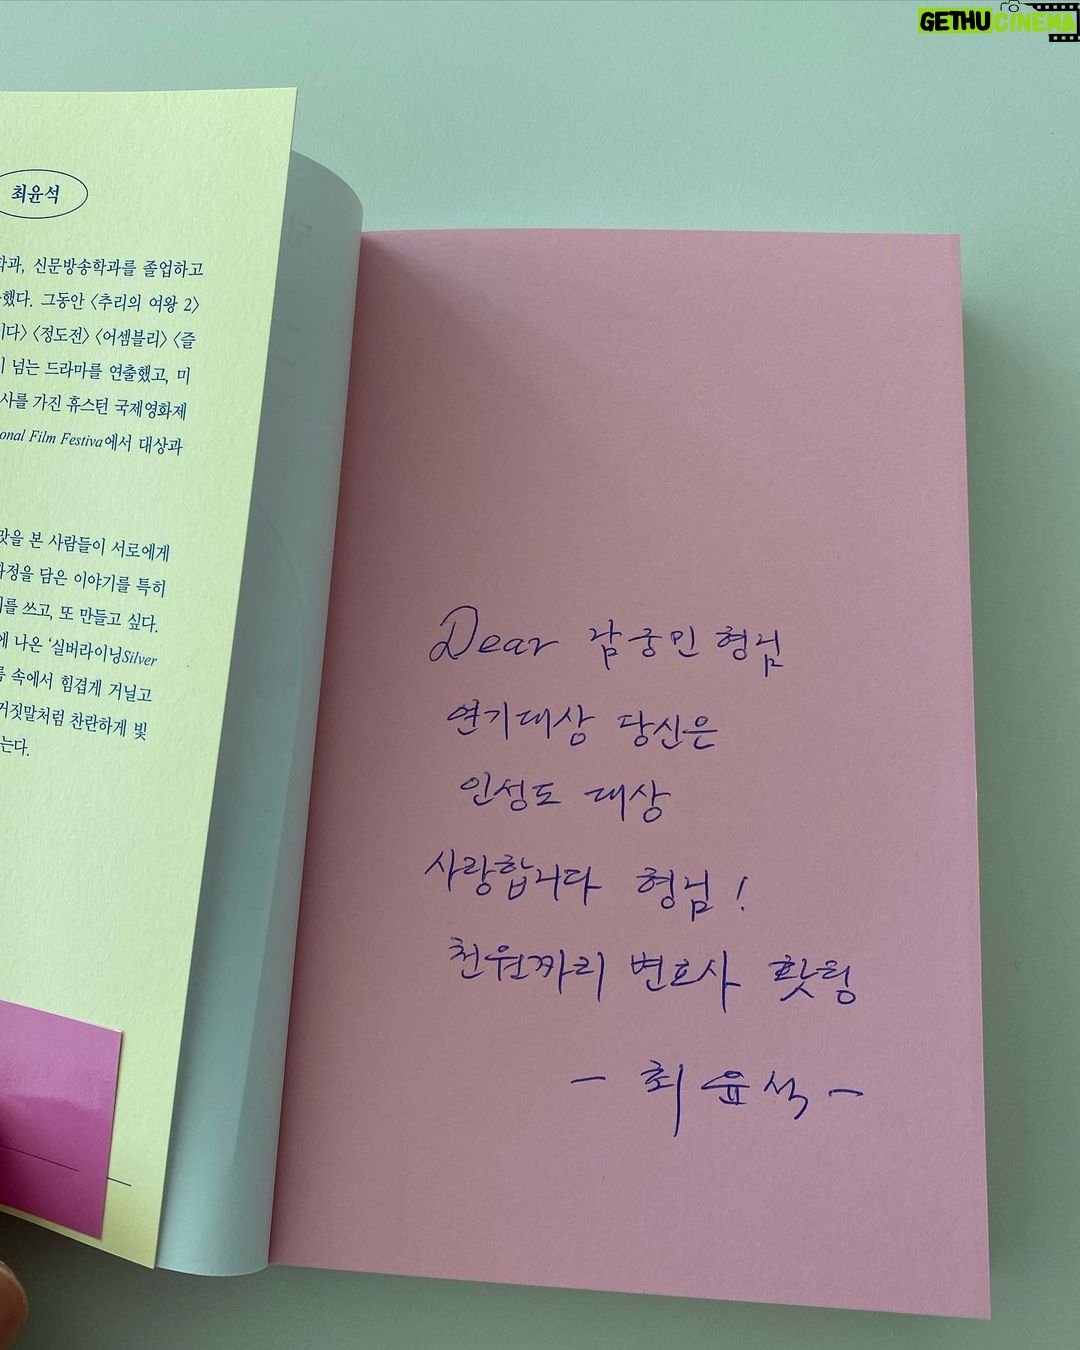 GETHUCINEMA
최윤석
학과, 신문방송학과를 졸업하고
했다. 그동안 〈추리의 여왕 2〉
이다〉 〈정도전〉 〈어셈블리〉 〈즐
넘는 드라마를 연출했고, 미
사를 가진 휴스턴 국제영화제
onal Film Festiva에서 대상과
맛을 본 사람들이 서로에게
과정을 담은 이야기를 특히
를 쓰고, 또 만들고 싶다.
에 나온 ‘실버라이닝Silver
속에서 힘겹게 거닐고
거짓말처럼 찬란하게 빛
는다.
Dear 남궁민 형님
연기대상 당신은
인성도 대상
사랑합니다 형님!
천원짜리 변호사 홧팅
- 최윤석 -